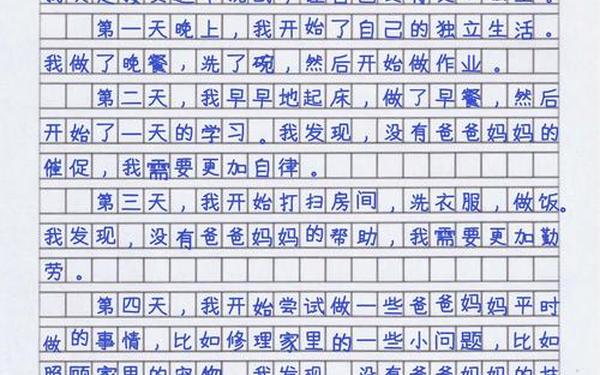 第一天晚上，我开始了自己的独立生活。
我做了晚餐，洗了碗，然后开始做作业。
第二天，我早早地起床，做了早餐，然后
开始了一天的学习。我发现，没有爸爸妈妈的
催促，我需要更加自律。
第三天，我开始打扫房间，洗衣服，做饭。
我发现，没有爸爸妈妈的帮助，我需要更加勤
劳。
第四天，我开始尝试做一些爸爸妈妈平时
做的事情，比如修理家里的一些小问题，比如
照顾家里的宠物。我发现，没有爸爸妈妈的